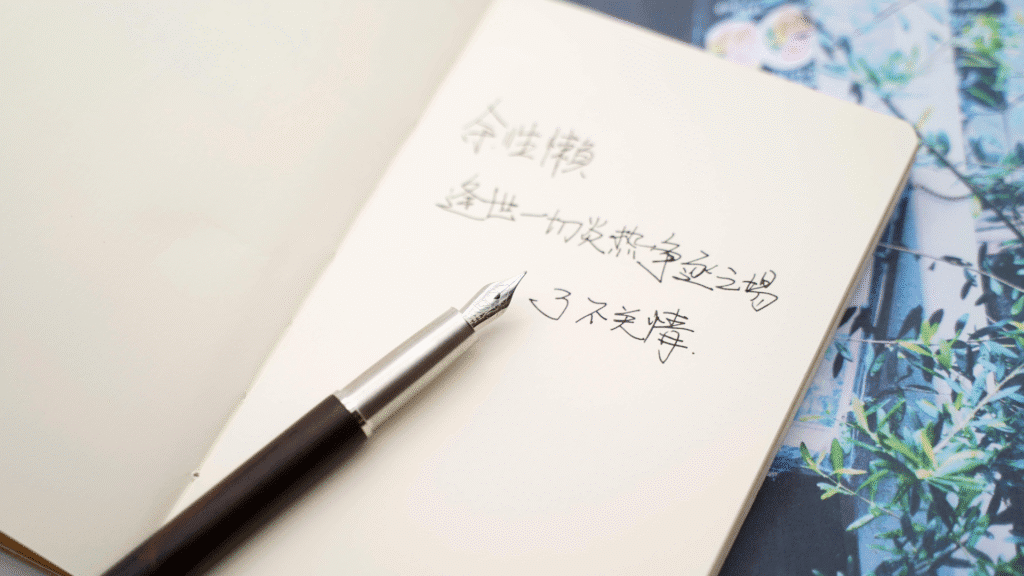 余性懒
逢世一切炎热争逐之场
了不关情.